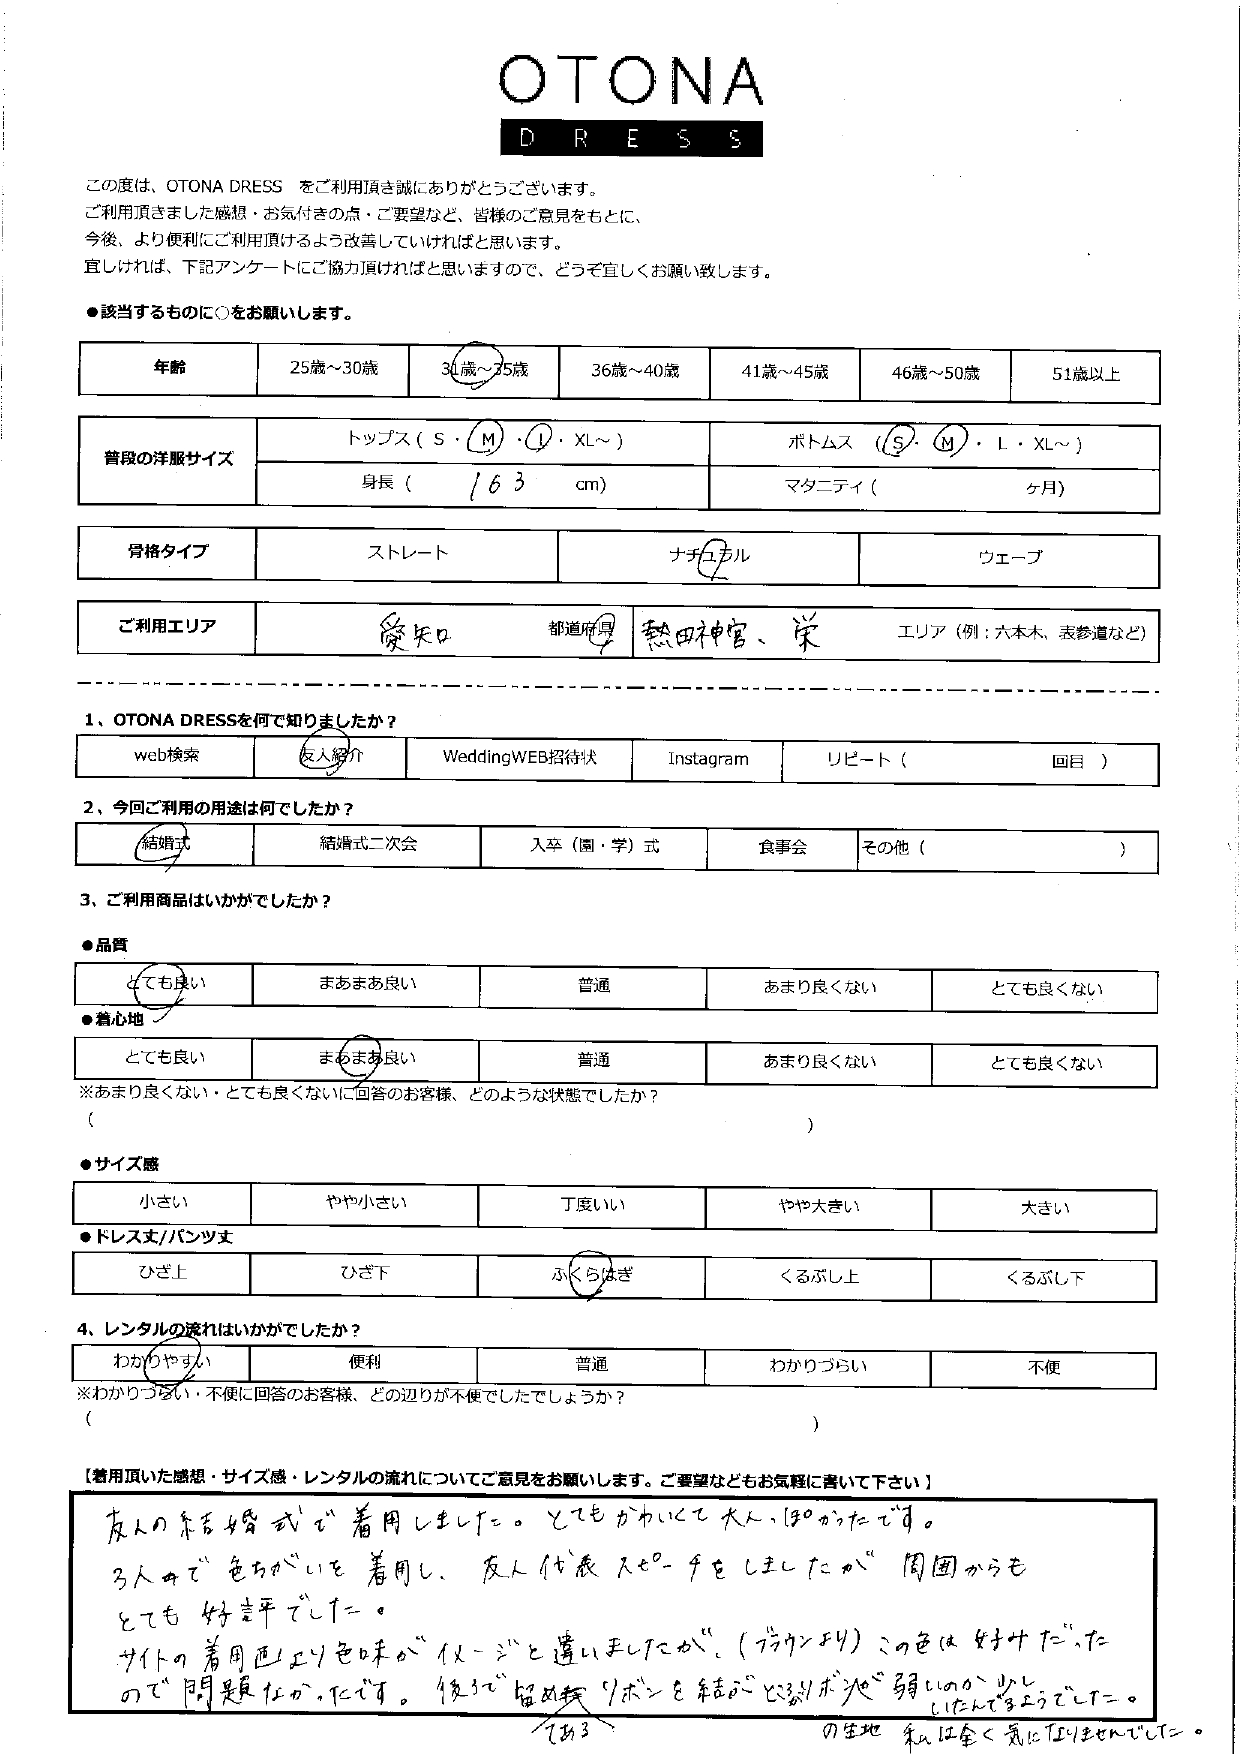 OTONA
DRESS
この度は、OTONA DRESS をご利用頂き誠にありがとうございます。
ご利用頂きました感想・お気付きの点・ご要望など、皆様のご意見をもとに、
今後、より便利にご利用頂けるよう改善していければと思います。
宜しければ、下記アンケートにご協力頂ければと思いますので、どうぞ宜しくお願い致します。
●該当するものに○をお願いします。
年齢 25歳～30歳 31歳～35歳 36歳～40歳 41歳～45歳 46歳～50歳 51歳以上
普段の洋服サイズ トップス ( S ・ M ・ L ・ XL～ ) ボトムス ( S ・ M ・ L ・ XL～ )
身長 ( 163 cm) マタニティ ( ヶ月)
骨格タイプ ストレート ナチュラル ウェーブ
ご利用エリア 愛知 都道府県 熱田神宮、栄 エリア (例：六本木、表参道など)
1、OTONA DRESSを何で知りましたか？
web検索 友人紹介 WeddingWEB招待状 Instagram リピート ( 回目 )
2、今回ご利用の用途は何でしたか？
結婚式 結婚式二次会 入卒（園・学）式 食事会 その他 ( )
3、ご利用商品はいかがでしたか？
●品質
とても良い まあまあ良い 普通 あまり良くない とても良くない
●着心地
とても良い まあまあ良い 普通 あまり良くない とても良くない
※あまり良くない・とても良くないに回答のお客様、どのような状態でしたか？
( )
●サイズ感
小さい やや小さい 丁度いい やや大きい 大きい
●ドレス丈/パンツ丈
ひざ上 ひざ下 ふくらはぎ くるぶし上 くるぶし下
4、レンタルの流れはいかがでしたか？
わかりやすい 便利 普通 わかりづらい 不便
※わかりづらい・不便に回答のお客様、どの辺りが不便でしたでしょうか？
( )
【着用頂いた感想・サイズ感・レンタルの流れについてご意見をお願いします。ご要望などもお気軽に書いて下さい】
友人の結婚式で着用しました。とてもかわいくて大人っぽかったです。
3人で色ちがいを着用し、友人代表スピーチをしましたが周囲からも
とても好評でした。
サイトの着用画より色味がイメージと違いましたが、(ブラウンより)この色は好みだった
ので問題なかったです。後ろで留める リボンを結ぶところがリボンが弱いのか少し
いたんでるようでした。
てある の生地 私は全く気になりませんでした。